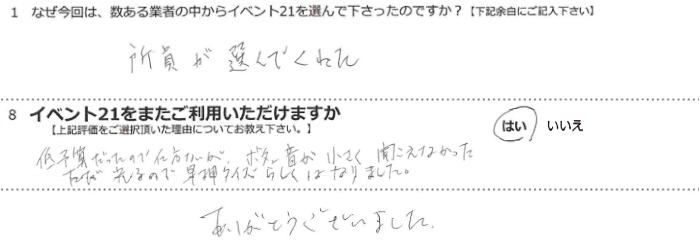 1 なぜ今回は、数ある業者の中からイベント21を選んで下さったのですか？【下記余白にご記入下さい】
所員が選んでくれた
8 イベント21をまたご利用いただけますか
【上記評価をご選択頂いた理由についてお教え下さい。】
はい いいえ
低予算だったので仕方ないが、ボタン音が小さく聞こえなかった
ただ光るので早押クイズらしくはなりました。
ありがとうございました。